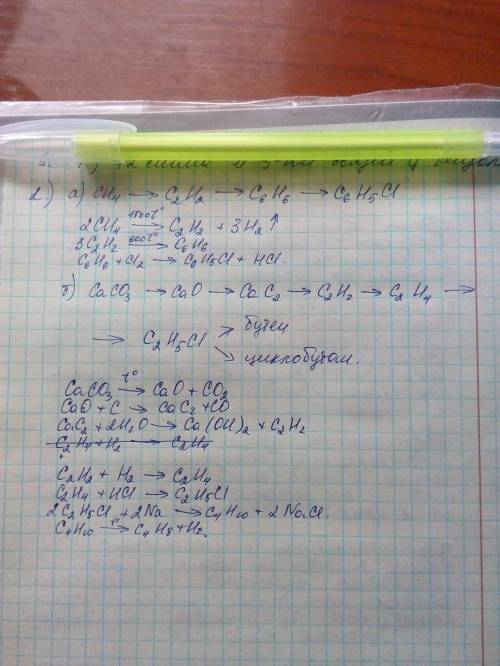 2) а) CH₄ → C₂H₂ → C₆H₆ → C₆H₅Cl
2CH₄ 1500t° → C₂H₂ + 3H₂ ↑
3C₂H₂ 600t° → C₆H₆
C₆H₆ + Cl₂ → C₆H₅Cl + HCl.
б) CaCO₃ → CaO → CaC₂ → C₂H₂ → C₂H₄ →
→ C₂H₅Cl → бутен
→ циклобутан.
CaCO₃ t° → CaO + CO₂
CaO + C → CaC₂ + CO
CaC₂ + 2H₂O → Ca(OH)₂ + C₂H₂
C₂H₄ + H₂ → C₂H₄
C₂H₂ + H₂ → C₂H₄
C₂H₄ + HCl → C₂H₅Cl
2C₂H₅Cl + 2Na → C₄H₁₀ + 2NaCl.
C₄H₁₀ t° → C₄H₈ + H₂.